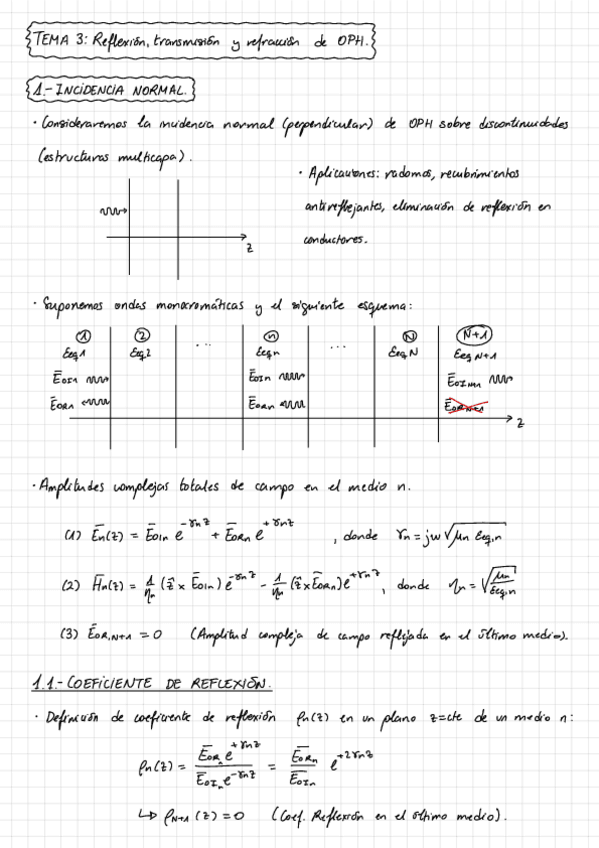 TEMA 3: Reflexión, transmisión y refracción de OPH.
1.- INCIDENCIA NORMAL.
· Consideraremos la incidencia normal (perpendicular) de OPH sobre discontinuidades
(estructuras multicapa).
· Aplicaciones: radomos, recubrimientos
antireflejantes, eliminación de reflexión en
conductores.
z
· Suponemos ondas monocromáticas y el siguiente esquema:
① ② ... ⓝ ... Ⓝ (N+1)
Eeq1 Eeq2 Eeqn EeqN EeqN+1
Ē0I1 Ē0In Ē0I N+1
Ē0R1 Ē0Rn Ē0R N+1
z
· Amplitudes complejas totales de campo en el medio n.
(1) Ēn(z) = Ē0In e^(-γn z) + Ē0Rn e^(+γn z) , donde γn = jw√(μn Eeq,n)
(2) H̄n(z) = 1/ηn (ẑ × Ē0In) e^(-γn z) - 1/ηn (ẑ × Ē0Rn) e^(+γn z), donde ηn = √(μn/Eeq,n)
(3) Ē0R,N+1 = 0 (Amplitud compleja de campo reflejada en el último medio).
1.1.- COEFICIENTE DE REFLEXIÓN.
· Definición de coeficiente de reflexión ρn(z) en un plano z=cte de un medio n:
ρn(z) = Ē0Rn e^(+γn z) / Ē0In e^(-γn z) = Ē0Rn / Ē0In e^(+2γn z)
↳ ρN+1 (z) = 0 (Coef. Reflexión en el último medio).